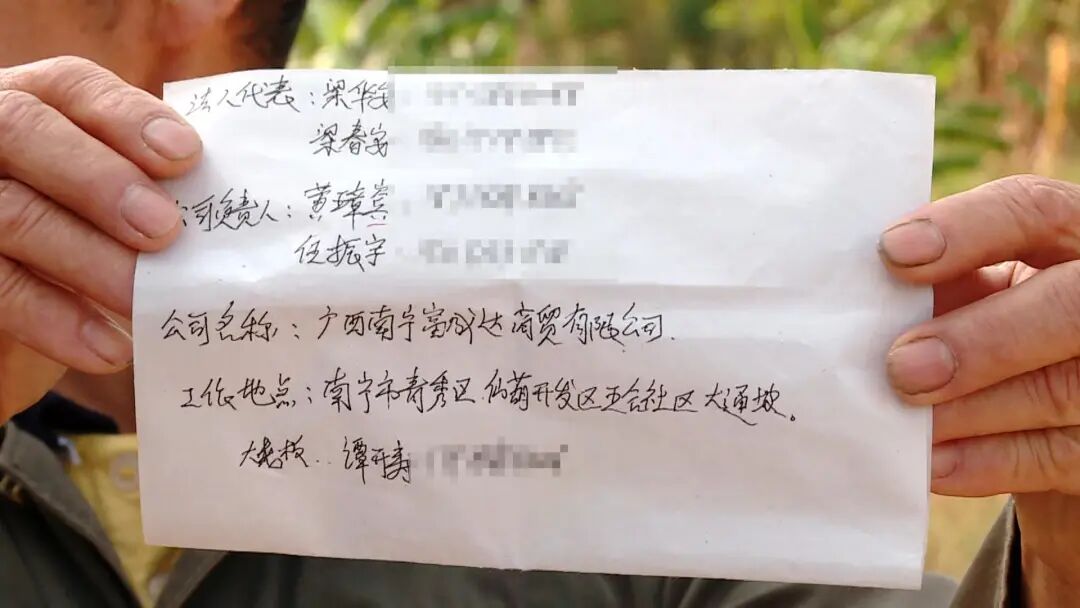 法人代表：梁华安
梁春安
公司负责人：黄璋宾
任振宇
公司名称：广西南宁富成达商贸有限公司.
工作地点：南宁市青秀区仙葫开发区五合社区大通坡。
大老板：谭开寿